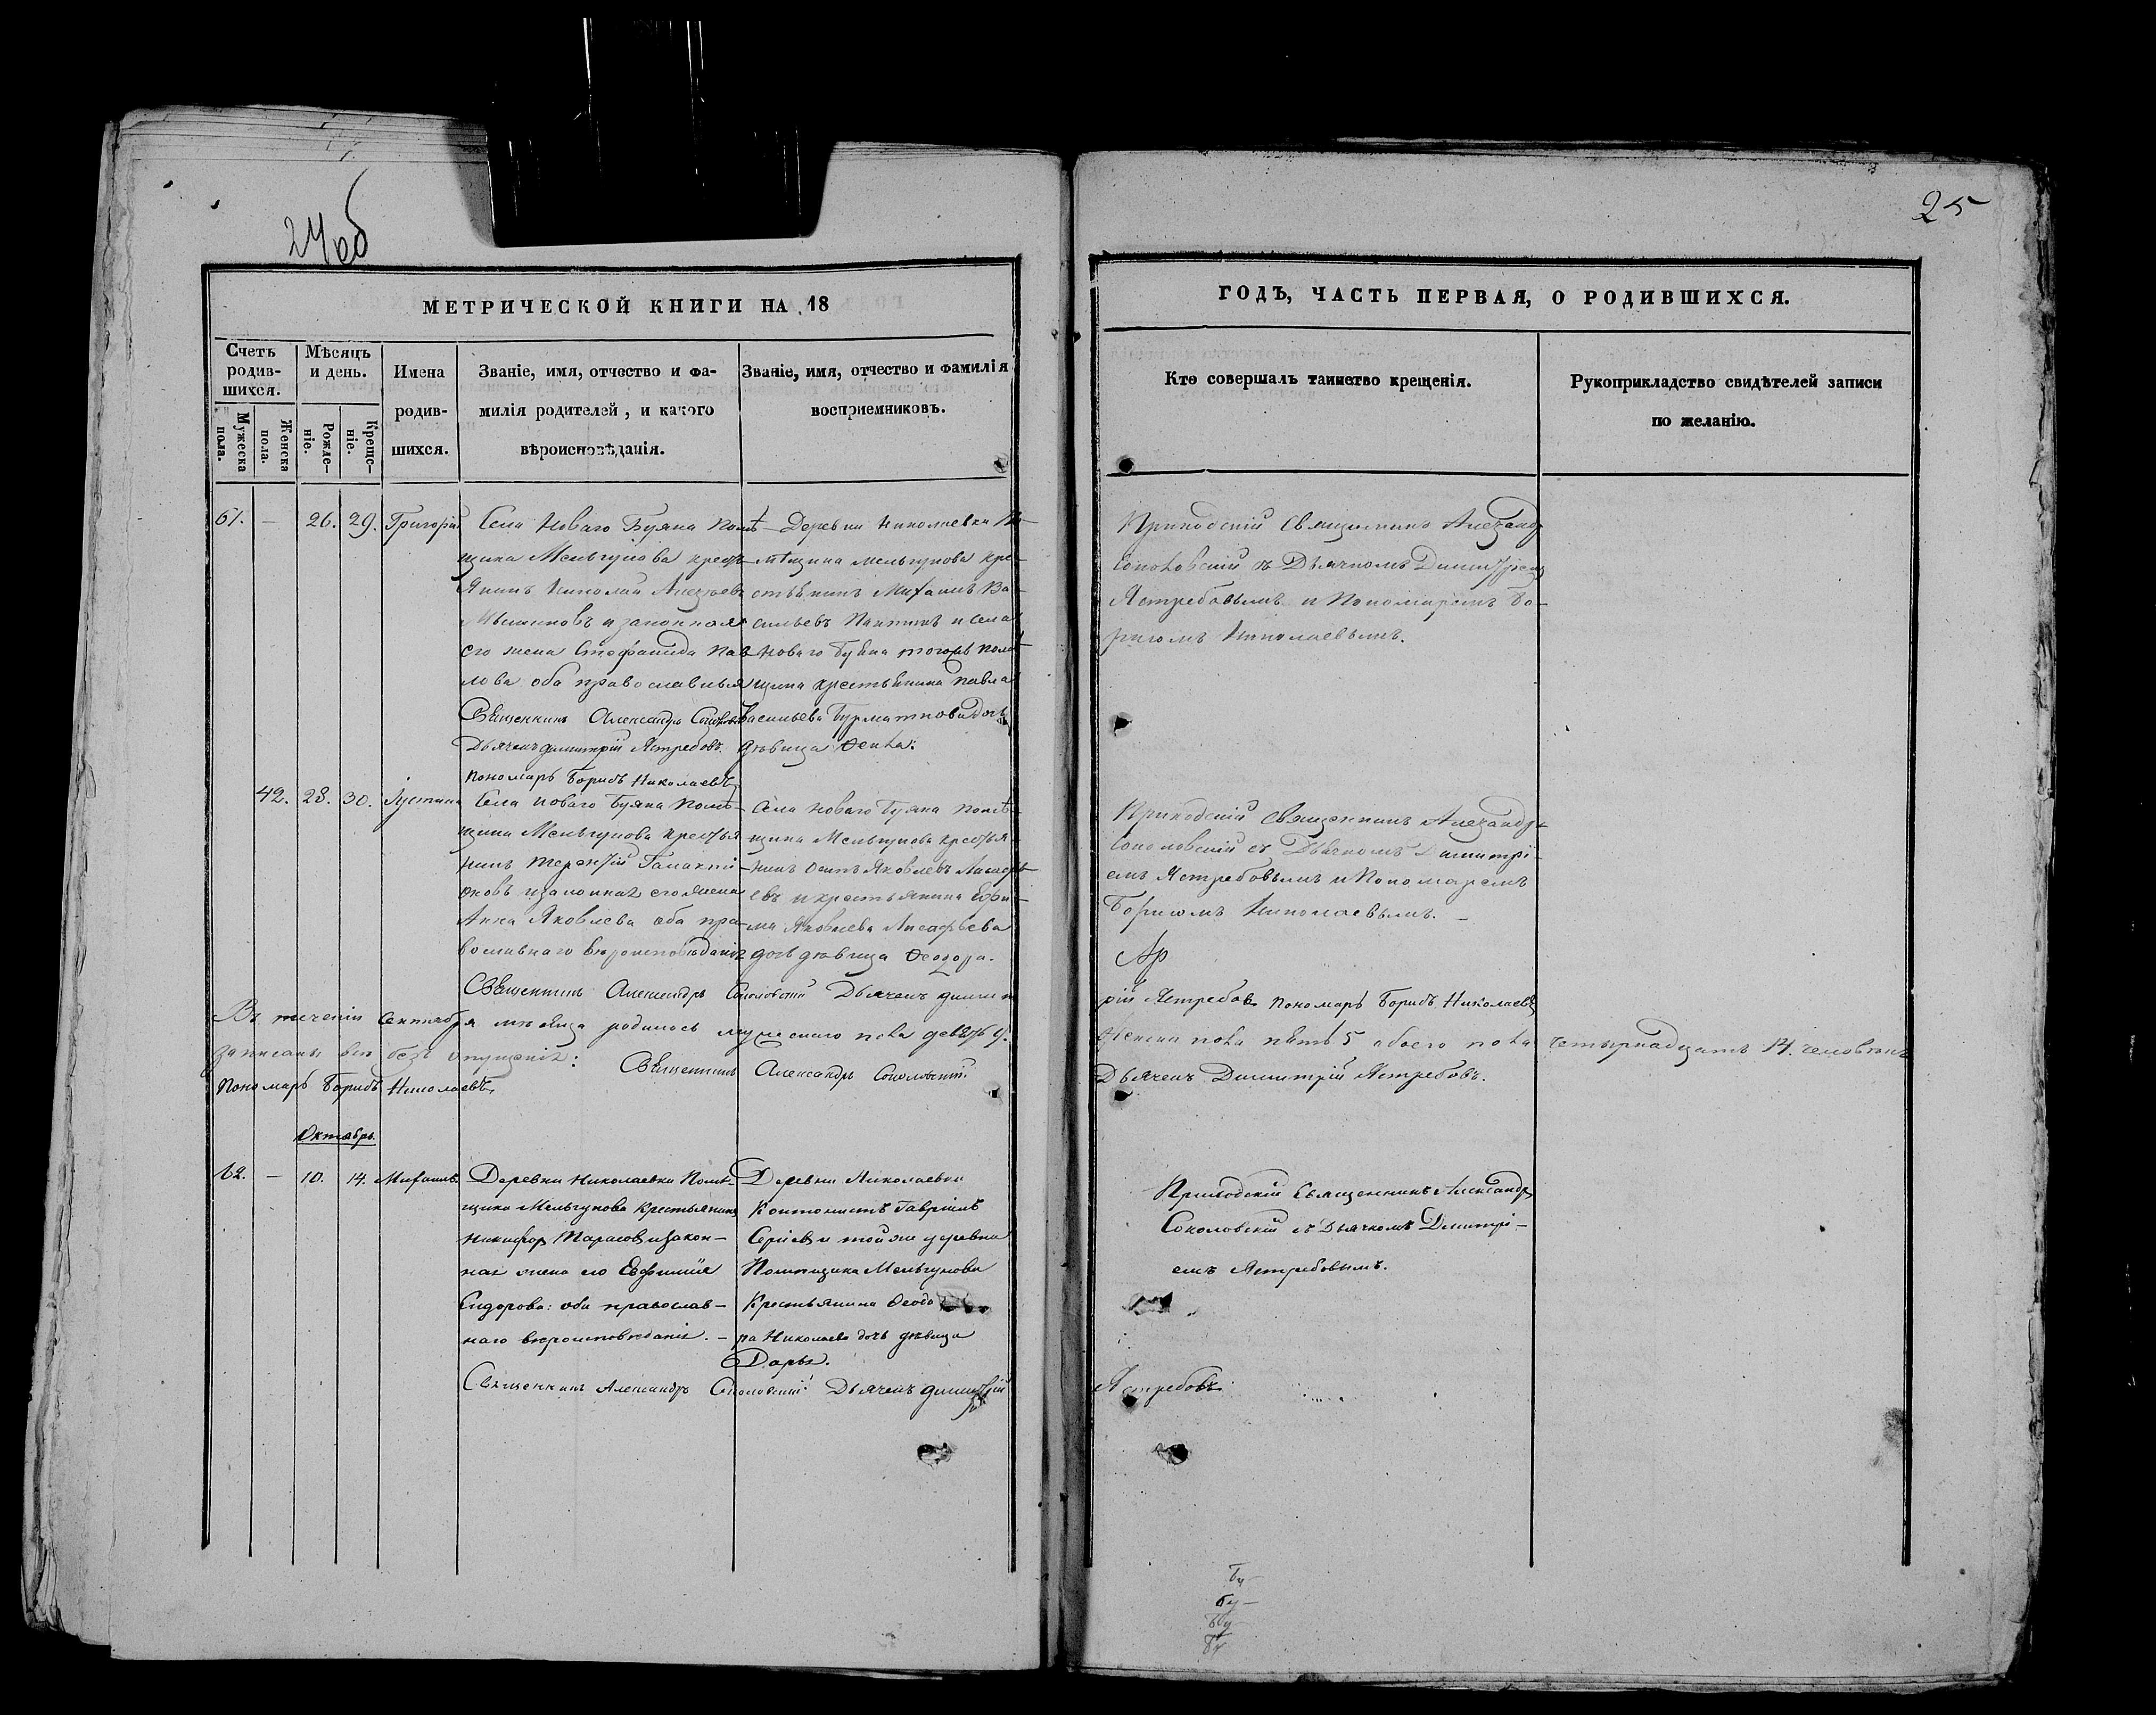 24 об
25
МЕТРИЧЕСКОЙ КНИГИ НА 18
ГОДЪ, ЧАСТЬ ПЕРВАЯ, О РОДИВШИХСЯ.
Счетъ родив-шихся.
Мужеска пола.
Женска пола.
Мѣсяцъ и день.
Рожде-ніе.
Креще-ніе.
Имена
родив-
шихся.
Званіе, имя, отчество и фа-
милія родителей, и какого
вѣроисповѣданія.
Званіе, имя, отчество и фамилія
воспріемниковъ.
Кто совершалъ таинство крещенія.
Рукоприкладство свидѣтелей записи
по желанію.
61. — 26. 29. Григорій
Села Новаго Буяна помѣ-
щика Мельгунова кресть-
янинъ Николай
и законная
его жена Стефанида Пав-
лова оба православныя
Священникъ Александръ Соколовскій
Дьячекъ Димитрій Ястребовъ.
Пономарь Борисъ Николаевъ
Деревни Николаевки по-
мѣщика Мельгунова кре-
стьянинъ Михаилъ Ва-
сильевъ и села
Новаго Буяна тогожъ помѣ-
щика крестьянина Павла
Васильева дочь
дѣвица Ѳекла.
Приходскій Священникъ Александръ
Соколовскій съ Дьячкомъ Димитріемъ
Ястребовымъ и Пономаремъ Бо-
рисомъ Николаевымъ.
42. 28. 30. Іустина
Села Новаго Буяна помѣ-
щика Мельгунова крестья-
нинъ Терентій Галакті-
оновъ и законная его жена
Анна Яковлева оба пра-
вославнаго вѣроисповѣданія
Села Новаго Буяна помѣ-
щика Мельгунова крестья-
нинъ Осипъ Яковлевъ
евъ и крестьянина Ефи-
ма Яковлева
дочь дѣвица Ѳеодора.
Приходскій Священникъ Александръ
Соколовскій съ Дьячкомъ Димитрі-
емъ Ястребовымъ и Пономаремъ
Борисомъ Николаевымъ. —
Священникъ Александръ Соколовскій Дьячекъ Димит
рій Ястребовъ Пономарь Борисъ Николаевъ
Въ теченіи Сентября мѣсяца родилось мужескаго пола девять 9.
Женска пола пять 5 обоего пола четырнадцать 14. человѣкъ
записаны всѣ безъ опущенія: Священникъ Александръ Соколовскій
Дьячекъ Димитрій Ястребовъ.
Пономарь Борисъ Николаевъ
Октябрь.
62. — 10. 14. Михаилъ.
Деревни Николаевки Помѣ-
щика Мельгунова Крестьянинъ
Никифоръ Тарасовъ и закон-
ная жена его Евфимія
Сидорова: оба православ-
наго вѣроисповѣданія. —
Деревни Николаевки
Кантонистъ Гавріилъ
и той же деревни
Помѣщика Мельгунова
Крестьянина Ѳеодо
ра Николаева дочь дѣвица
Дарья.
Приходскій Священникъ Александръ
Соколовскій съ Дьячкомъ Димитрі-
емъ Ястребовымъ.
Священникъ Александръ Соколовскій Дьячекъ Димитрій
Ястребовъ
Бу —
бу —
Бу